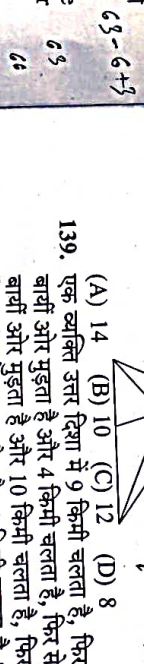 63-6+3
63
66
(A) 14 (B) 10 (C) 12 (D) 8
139. एक व्यक्ति उत्तर दिशा में 9 किमी चलता है, फिर
बायीं ओर मुड़ता है और 4 किमी चलता है, फिर से
बायीं ओर मुड़ता है और 10 किमी चलता है, फिर